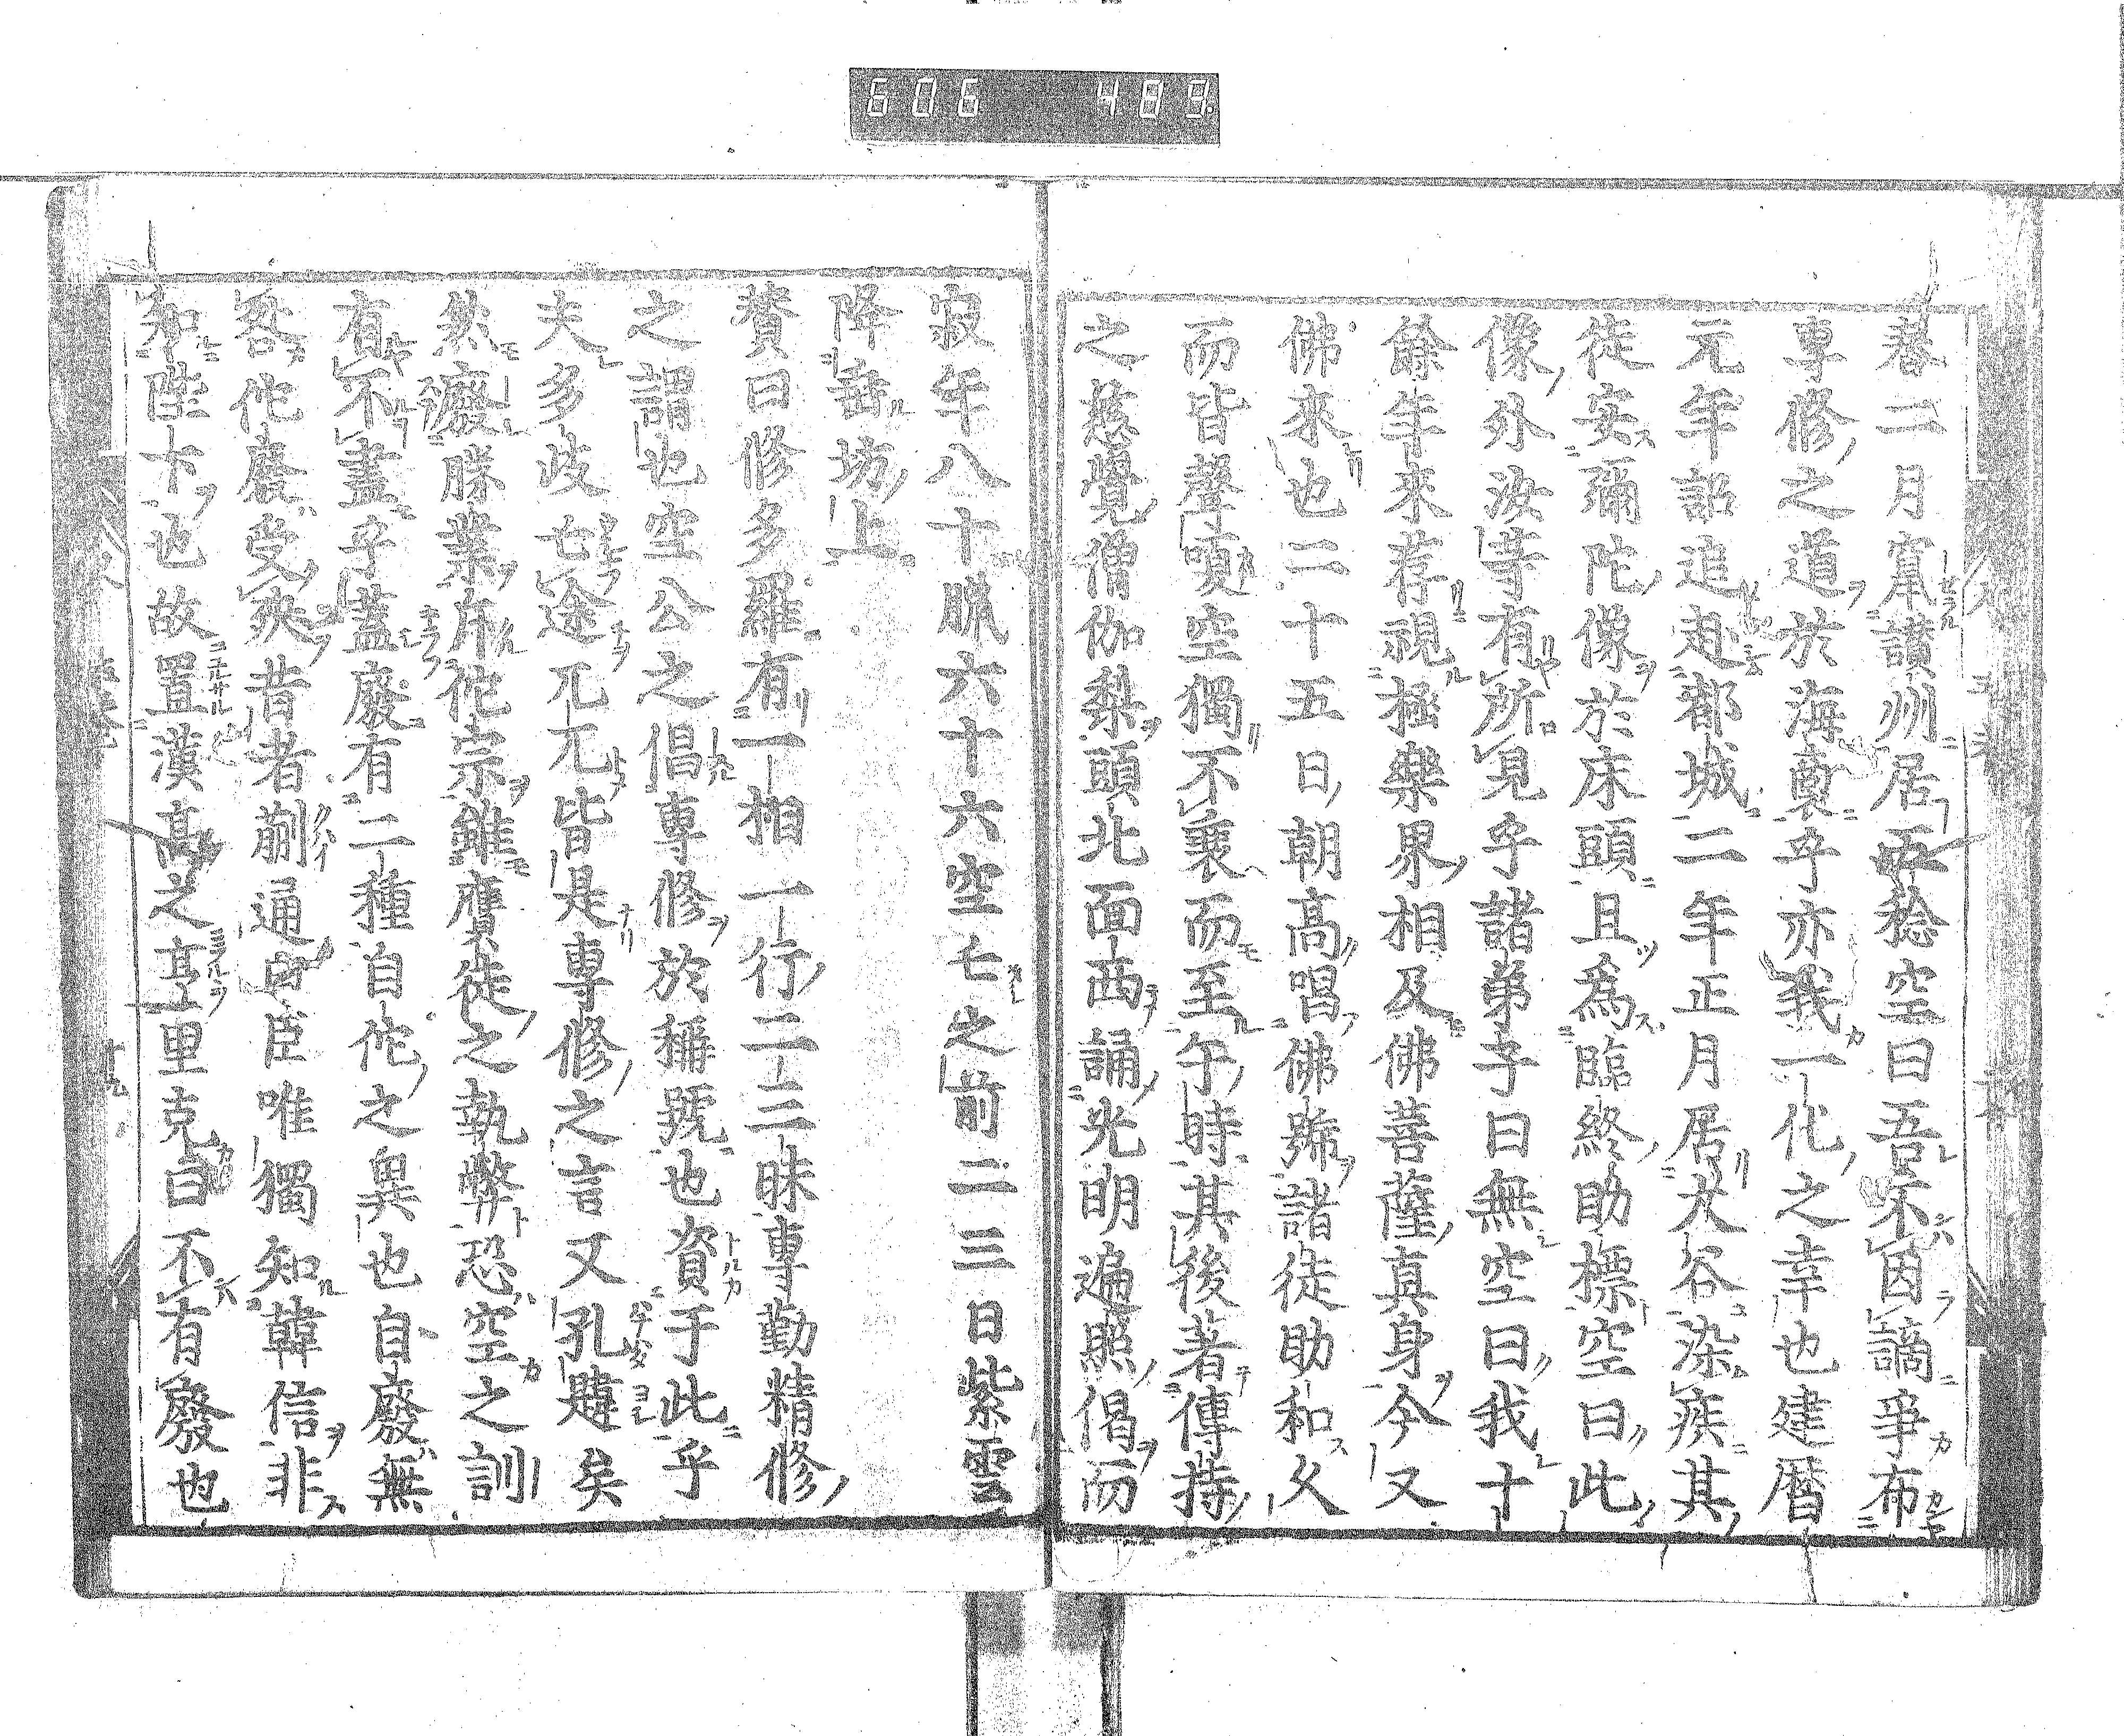 606 489
春二月竄讃州居五稔空曰吾不因謫爭布
專修之道於海裔乎亦我一代之幸也建曆
元年詔追赴都城二年正月居大谷染疾其
徒安彌陀像於床頭且爲臨終助標空曰此
像外汝等有所見乎諸弟子曰無空曰我十
餘年來荐視極樂界相及佛菩薩真身今又
佛來也二十五日朝高唱佛號諸徒助和久
而皆聲嗄空獨不衰而至午時其後著傳持
之慈覺僧伽梨頭北面西誦光明遍照偈而
寂年八十臘六十六空亡之前二三日紫雲
降垂坊上
賛曰修多羅有一相一行二三昧專勤精修
之謂也空公之倡專修於稱號也資于此乎
夫多歧亡途兀兀皆是專修之言又孔韙矣
然廢勝業斥佗宗雖贋徒之執弊恐空之訓
有不盡乎蓋廢有二種自佗之異也自廢無
咎佗廢受殃昔者蒯通曰臣唯獨知韓信非
知陛下也故置漢高之亨里克曰不有廢也